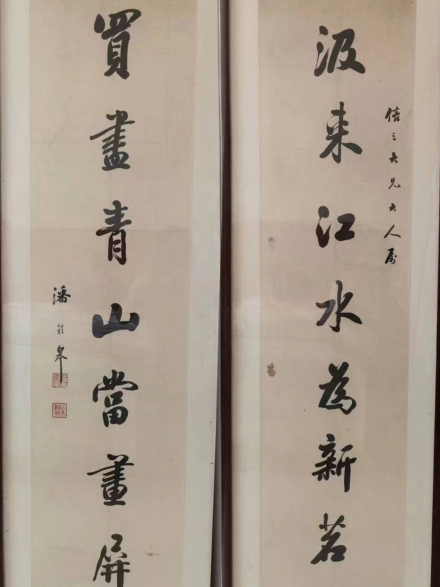 倍之大兄大人属
汲来江水為新茗
買盡青山當畫屏
潘齡皋